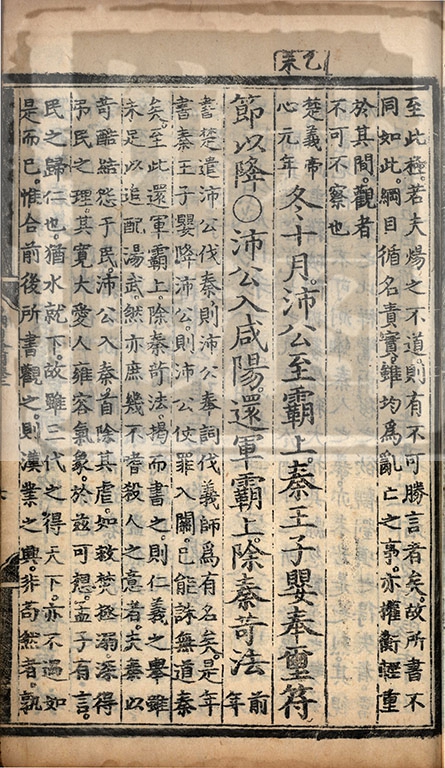 乙未
至此極。若夫煬之不道。則有不可勝言者矣。故所書不
同如此。綱目循名責實。雖均爲亂亡之事。亦權衡輕重
於其間。觀者
不可不察也
楚義帝
心元年
冬十月。沛公至霸上。秦王子嬰奉璽符
節以降○沛公入咸陽。還軍霸上。除秦苛法
前
年
書楚遣沛公伐秦。則沛公奉詞伐義師爲有名矣。是年
書秦王子嬰降沛公。則沛公使罪入關。已能誅無道秦
矣。至此還軍霸上。除秦苛法。揭而書之。則仁義之舉雖
未足以追配湯武。然亦庶幾不嗜殺人之意者。夫秦以
苛酷結怨于民。沛公入秦首除其虐。如救焚拯溺。深得
弔民之理。其寬大愛人雍容氣象。於兹可想。孟子有言
民之歸仁也。猶水就下。故雖三代之得天下。亦不過如
是而已。惟合前後所書觀之。則漢業之興。非苟然者。孰